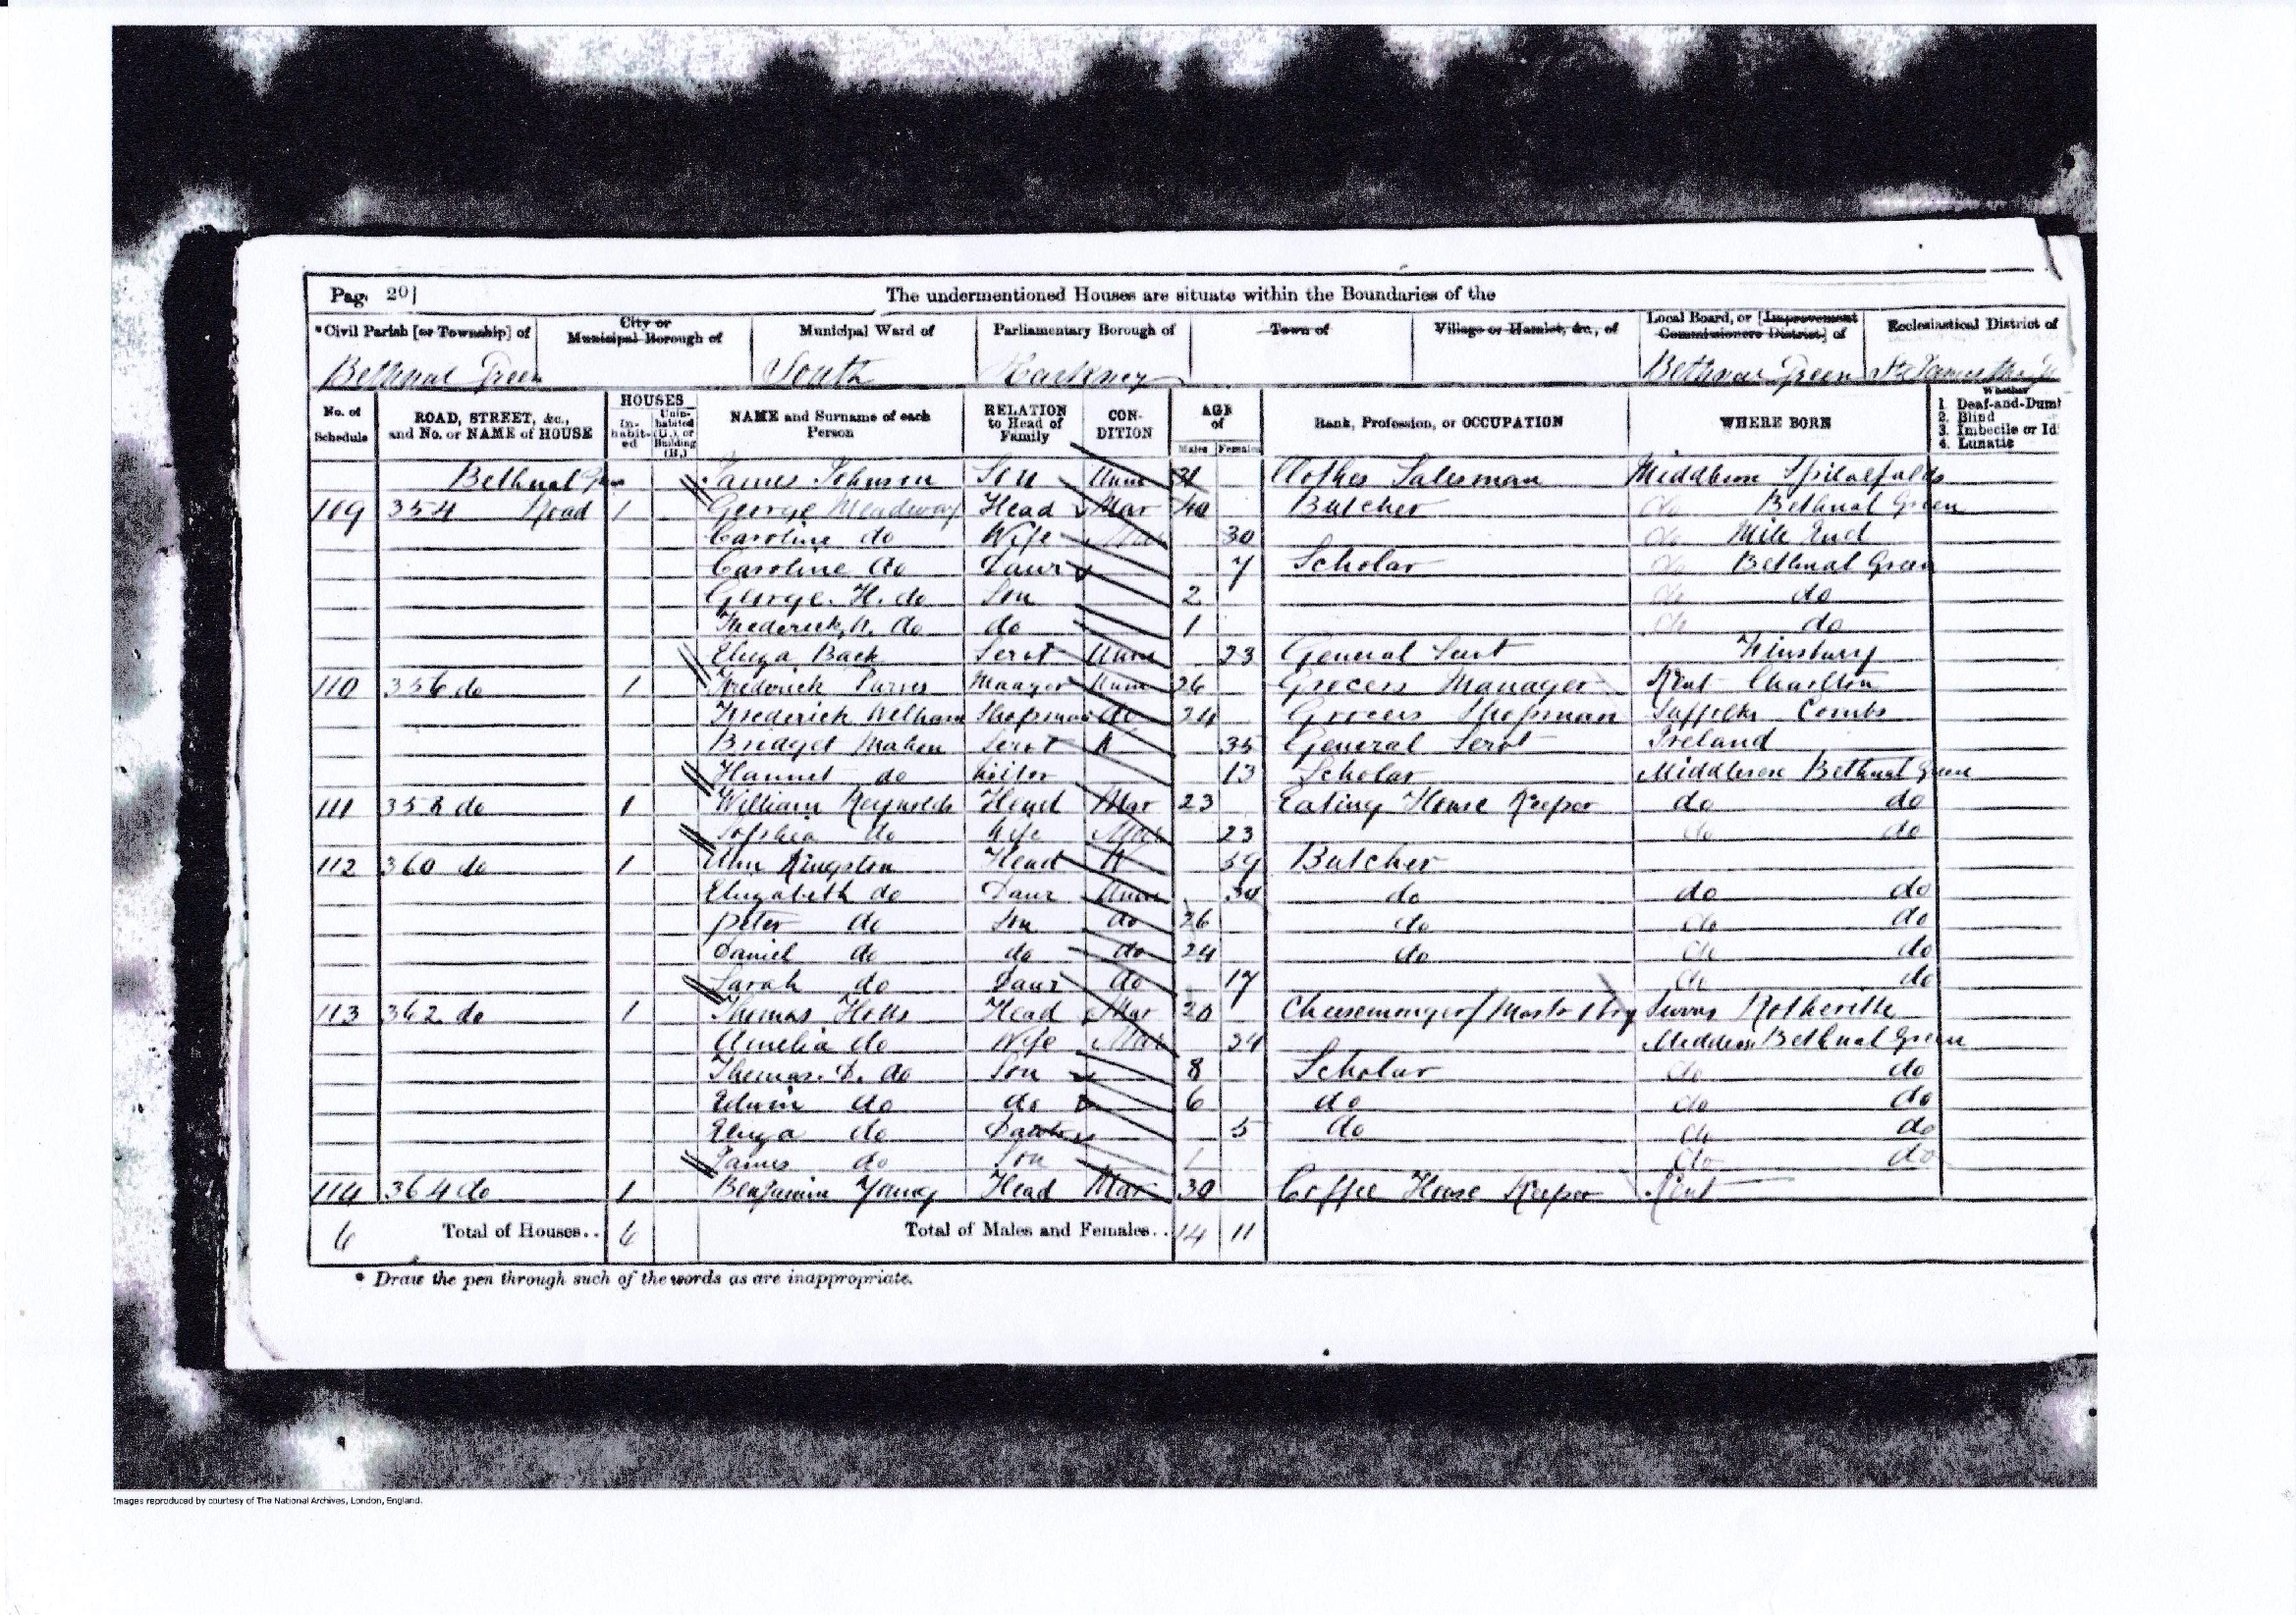 Page 20]
The undermentioned Houses are situate within the Boundaries of the
*Civil Parish [or Township] of City or Municipal Borough of Municipal Ward of Parliamentary Borough of Town of Village or Hamlet, &c., of Local Board, or [Improvement Commissioners District] of Ecclesiastical District of
Bethnal Green South Hackney Bethnal Green St James the
No. of Schedule ROAD, STREET, &c., and No. or NAME of HOUSE HOUSES Inhabited Uninhabited (U.), or Building (B.) NAME and Surname of each Person RELATION to Head of Family CONDITION AGE of Males Females Rank, Profession, or OCCUPATION WHERE BORN Whether 1. Deaf-and-Dumb 2. Blind 3. Imbecile or Id 4. Lunatic
Bethnal Green James Johnson Son Unm 31 Clothes Salesman Middlesex Spitalfields
109 354 Road 1 George Meadway Head Mar 40 Butcher do Bethnal Green
Caroline do Wife Mar 30 do Mile End
Caroline do Daur 7 Scholar do Bethnal Green
George. H. do Son 2 do do
Frederick do do 1 do do
Eliza Back Servt Unm 23 General Servt Finsbury
110 356 do 1 Frederick Manager Unm 26 Grocers Manager Kent Charlton
Frederick Welham Shopman do 24 Grocers Shopman Suffolk Combs
Bridget Mahen Servt 35 General Servt Ireland
do 13 Scholar Middlesex Bethnal Green
111 358 do 1 William Reynolds Head Mar 23 Eating House Keeper do do
Sophia do Wife Mar 23 do do
112 360 do 1 Ann Kingston Head W 59 Butcher
Elizabeth do Daur Unm do do do
Peter do Son do 26 do do do
Daniel do do do 24 do do do
Sarah do Daur do 17 do do
113 362 do 1 Thomas Head Mar Cheesemonger/ Rotherithe
Amelia do Wife Mar Bethnal Green
Thomas. D. do Son 8 Scholar do do
Edwin do do 6 do do do
Eliza do 5 do do do
James do Son 1 do do
114 364 do 1 Benjamin Young Head Mar 30 Coffee House Keeper Kent
6 Total of Houses.. 6 Total of Males and Females.. 14 11
* Draw the pen through such of the words as are inappropriate.
Images reproduced by courtesy of The National Archives, London, England.